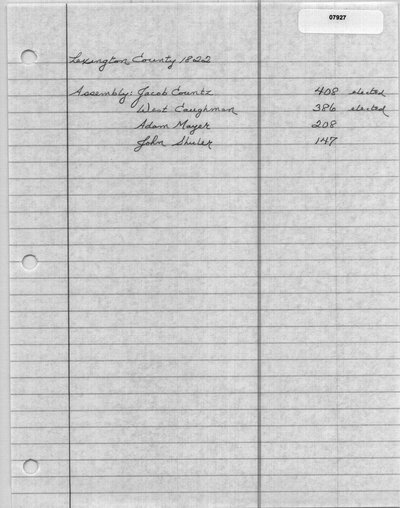 07927
Lexington County 1822
Assembly: Jacob Countz 408 elected
West Caughman 386 elected
Adam Mayer 208
John Shuler 147